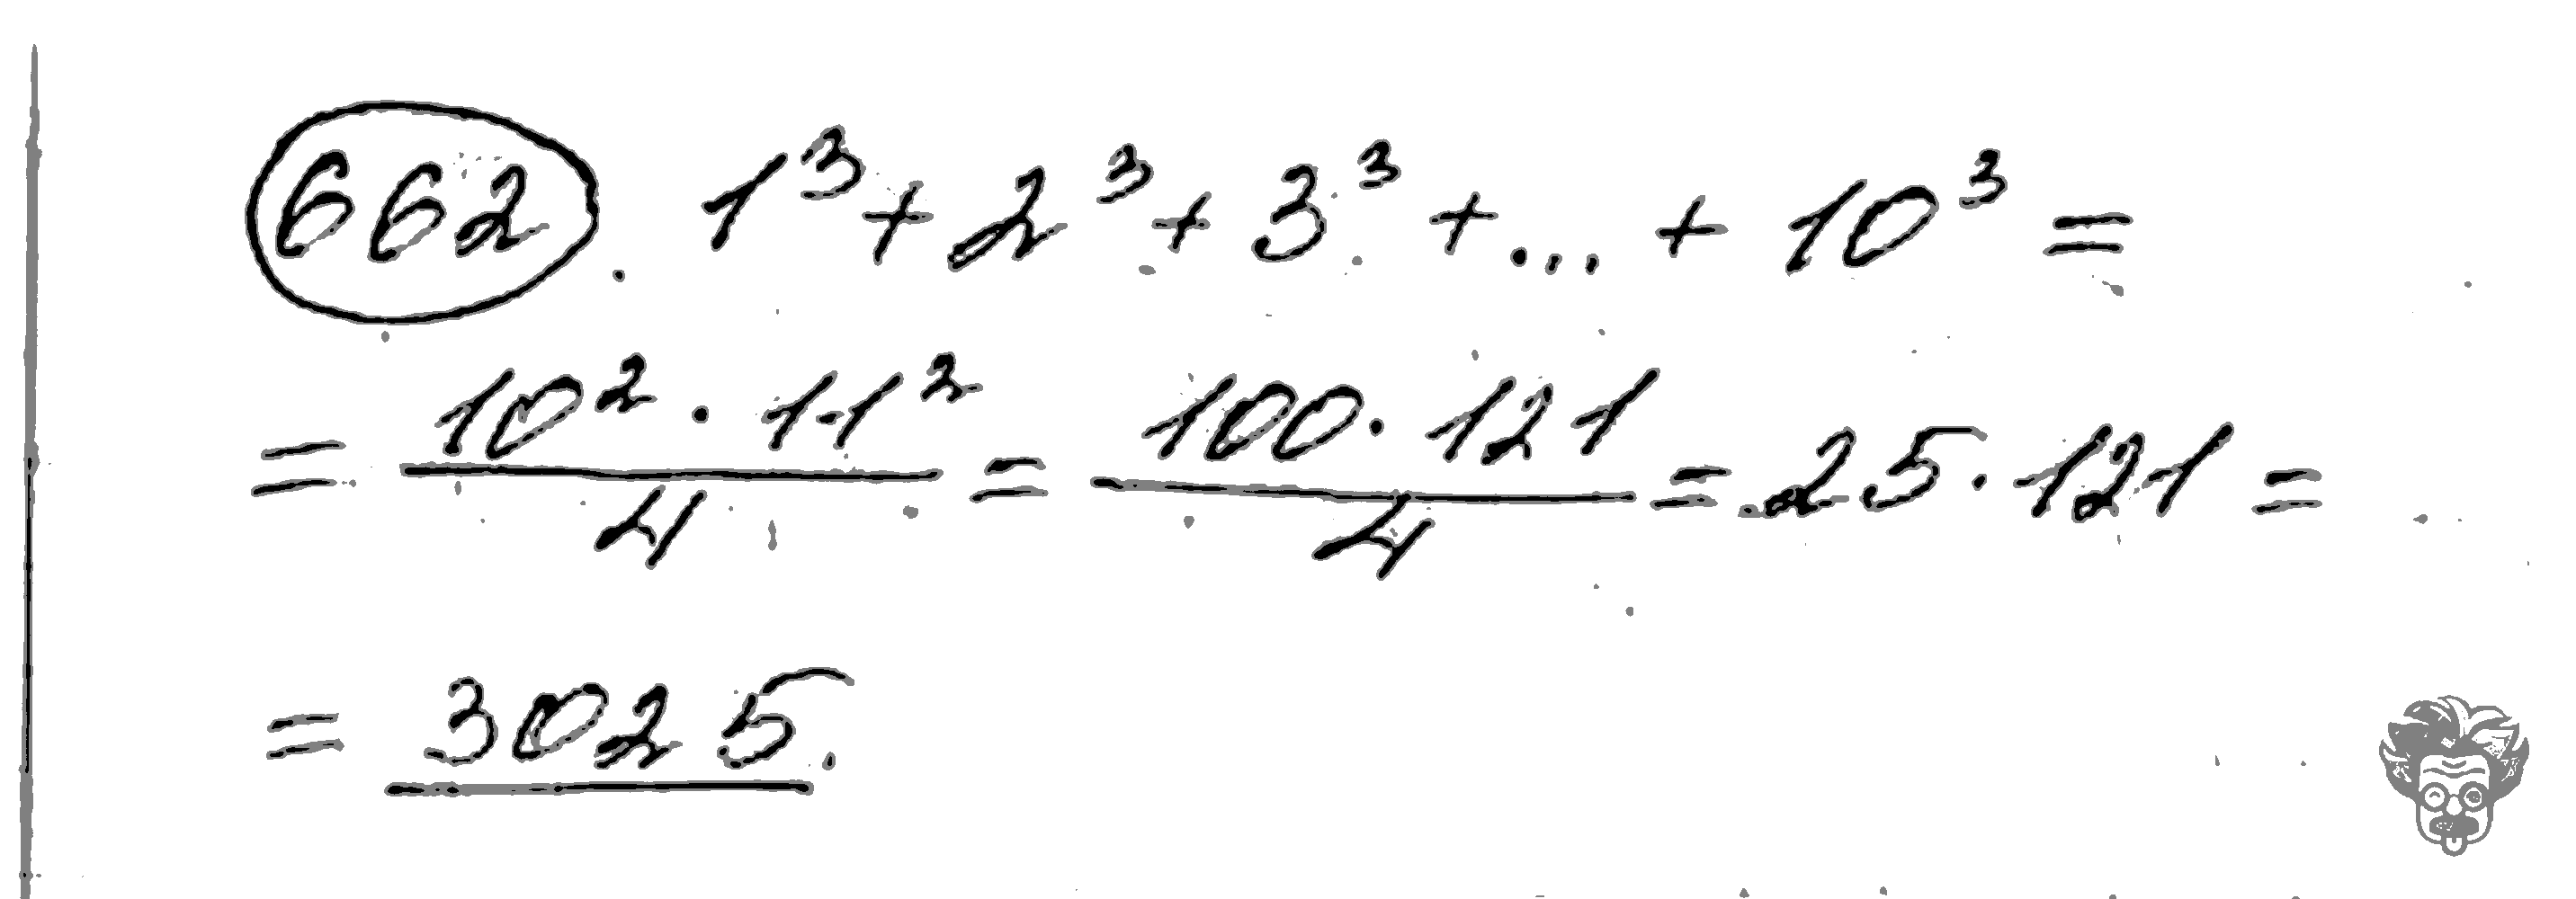 662. 1³ + 2³ + 3³ + ... + 10³ =
= 10² · 11² / 4 = 100 · 121 / 4 = 25 · 121 =
= 3025.